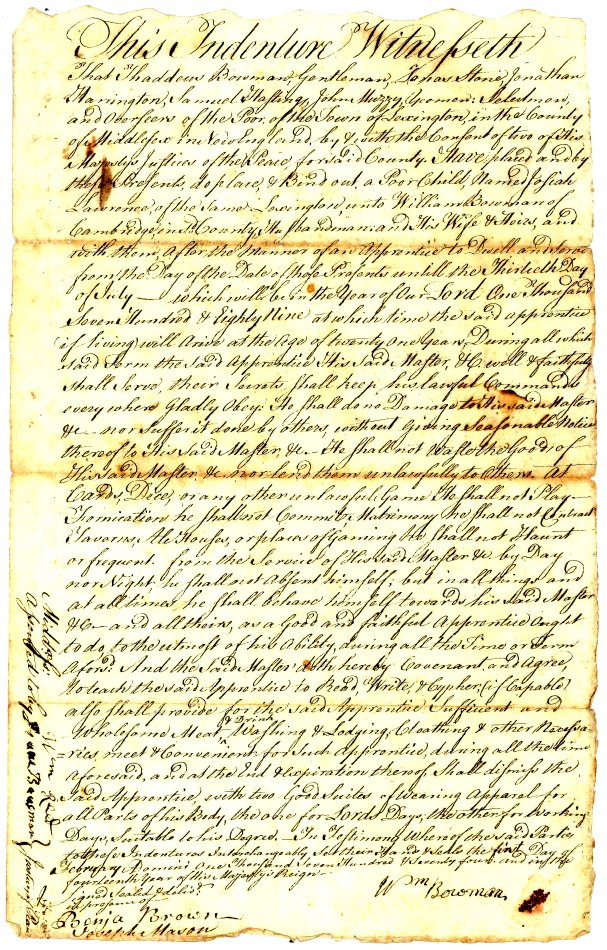 This Indenture Witnesseth
That Thaddeus Bowman, Gentleman, Jonas Stone, Jonathan
Harrington, Samuel Hastings, John Muzzy, Yeomen: Selectmen,
and Overseers of the Poor, of the Town of Lexington, in the County
of Middlesex in New England, by & with the Consent of two of His
Majestys Justices of the Peace, for said County, Have placed and by
these Presents, do place, & Bind out, a Poor Child, Named Josiah
Lawrence, of the Same Lexington, unto William Bowman of
Cambridge, in sd. County, Husbandman: and His Wife & Heirs, and
with them, After the Manner of an Apprentice to Dwell and Serve
from the Day of the Date of these Presents untill the Thirtieth Day
of July — which will be in the Year of Our Lord One Thousand
Seven Hundred & Eighty Nine at which time the said apprentice
(if living) will Arive at the Age of twenty One Years, During all which
said Term the said Apprentice His said Master, &c. well & faithfully
Shall Serve, their Secrets, shall keep, his lawful Commands
every where Gladly Obey: He shall do no Damage to His said Master
&c — nor Suffer it done by others, without Giving Seasonable Notice
thereof to His Said Master, &c — He shall not Waste the Goods of
His said Master, &c nor lend them unlawfully to Others. At
Cards, Dice, or any other unlawful Game He shall not Play —
Fornication he shall not Commit, Matrimony he shall not Contract
Taverns, Ale Houses, or places of Gaming he shall not Haunt
or frequent. from the Service of His said Master &c by Day
nor Night he shall not Absent himself; but in all things and
at all times, he shall behave himself towards his said Master
&c — and all theirs, as a Good and faithful Apprentice Ought
to do, to the utmost of his Ability, during all the Time or Term
Aforsd. And the Said Master doth hereby Covenant and Agree,
to teach the said Apprentice to Read, Write, & Cypher, (if Capable)
also shall provide for the said Apprentice Sufficent and
Wholesome Meat & Drink Washing & Lodging, Cloathing & other Necessa-
=ries, meet & Convenient for Such Apprentice, during all the time
aforesaid, and at the End & Expiration thereof, Shall dismiss the
Said Apprentice, with two Good Suites of Wearing Apparel for
all Parts of his Body, the one for Lords Days, the other for Working
Days, Suitable to his Degree. In Testimony Whereof the said Parties
to these Indentures Interchangeably Set their Hands & Seals the first Day
February Domini One Thousand Seven Hundred & Seventy four and in the
fourteenth Year of his Majestys Reign —
Signd Seald & delivd.
in presence of
Wm Bowman
Benja Brown
Joseph Mason
Middlesex
Assented to by
Wm Reed
Isaac Bowman